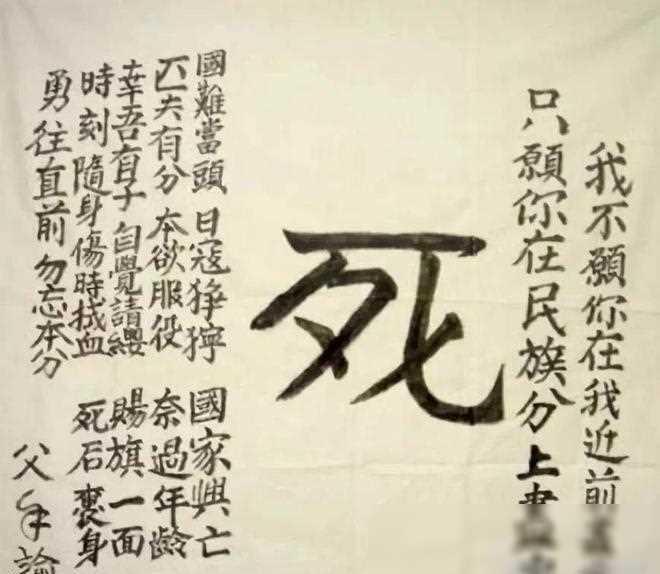 我不願你在我近前
只願你在民族分上
死
國難當頭 日寇猙獰 國家興亡
匹夫有分 本欲服役 奈過年齡
幸吾有子 自覺請纓 賜旗一面
時刻隨身 傷時拭血 死后裹身
勇往直前 勿忘本分
父手諭